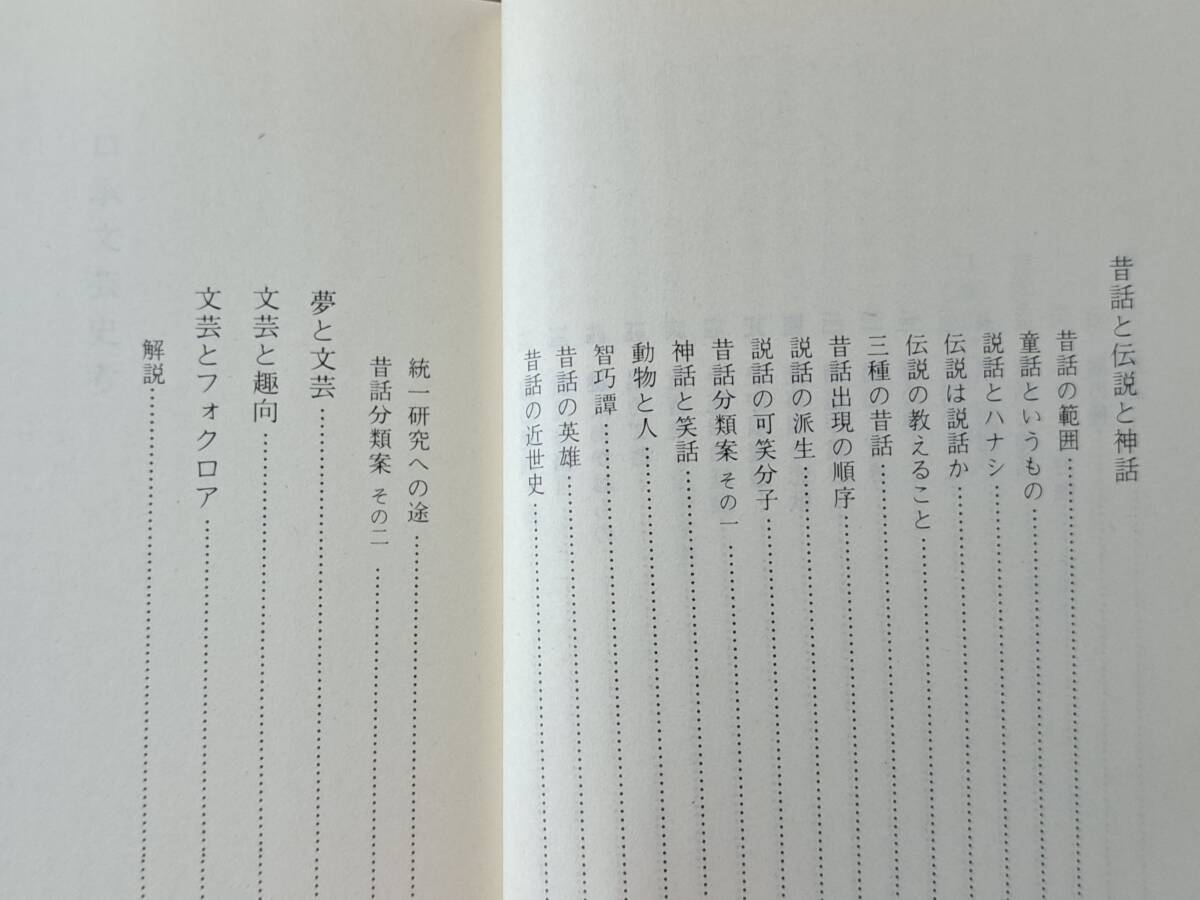 昔話と伝説と神話
昔話の範囲
童話というもの
説話とハナシ
伝説は説話か
伝説の教えること
三種の昔話
昔話出現の順序
説話の派生
説話の可笑分子
昔話分類案 その一
神話と笑話
動物と人
智巧譚
昔話の英雄
昔話の近世史
統一研究への途
昔話分類案 その二
夢と文芸
文芸と趣向
文芸とフォクロア
解説